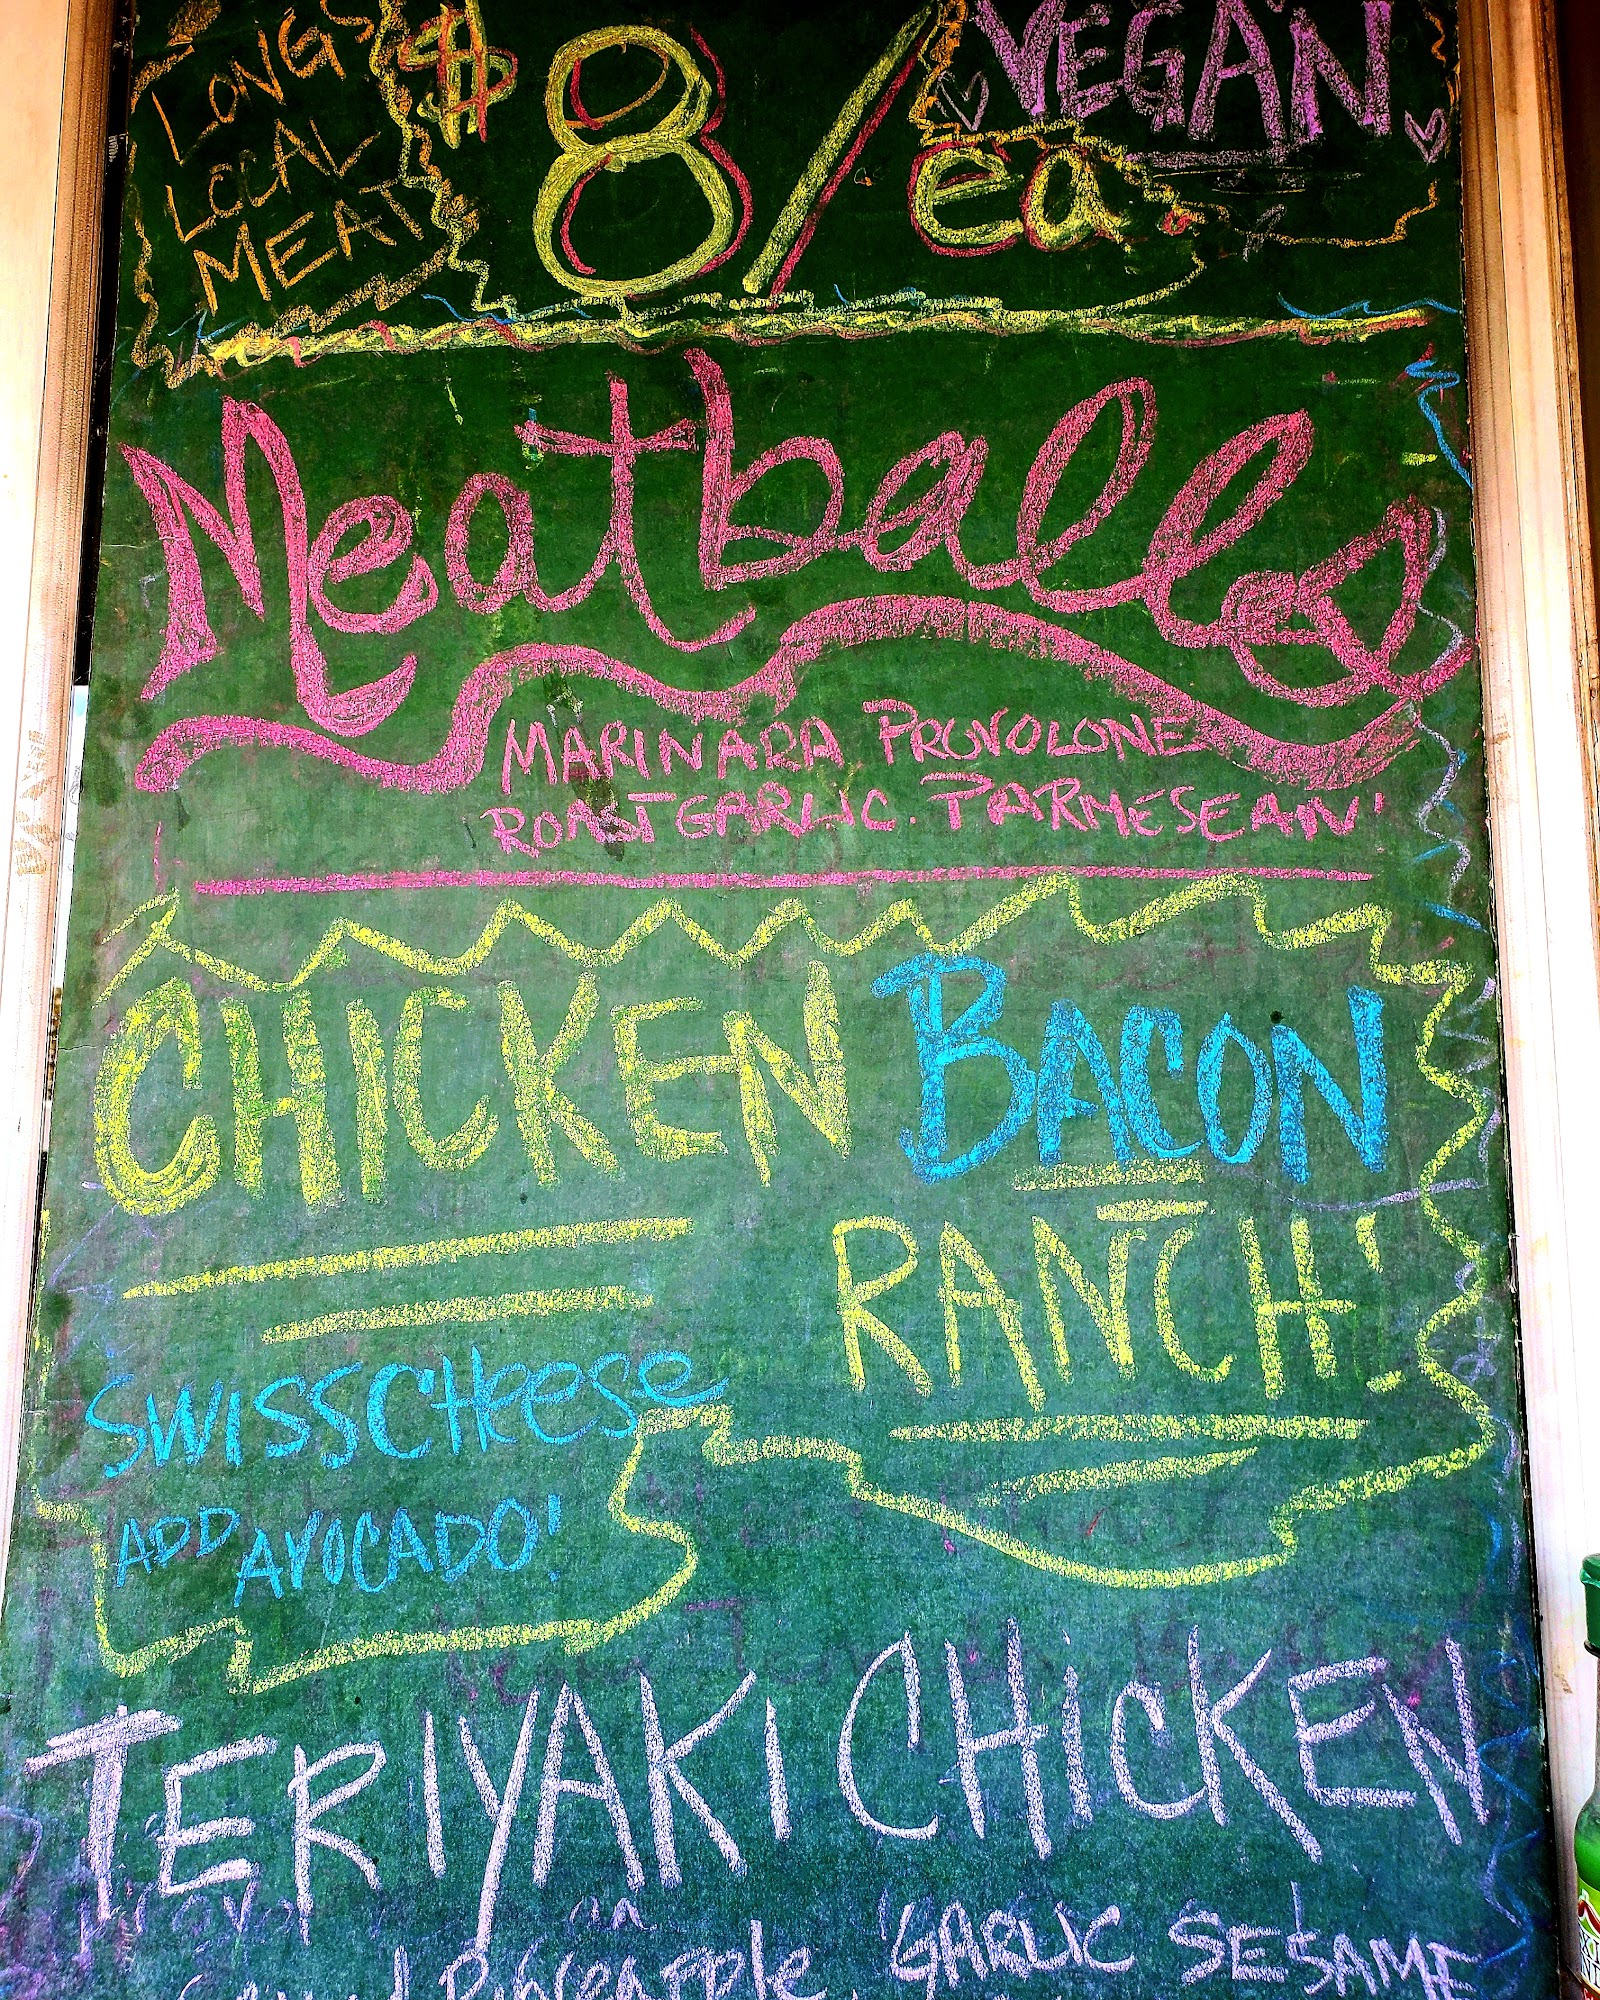 LONGS
LOCAL
MEAT
$8/ea.
VEGAN
Meatballs
MARINARA PROVOLONE
ROAST GARLIC. PARMESEAN!
CHICKEN BACON
RANCH!
SWISS CHEESE
ADD AVOCADO!
TERIYAKI CHICKEN
Pineapple, GARLIC SESAME